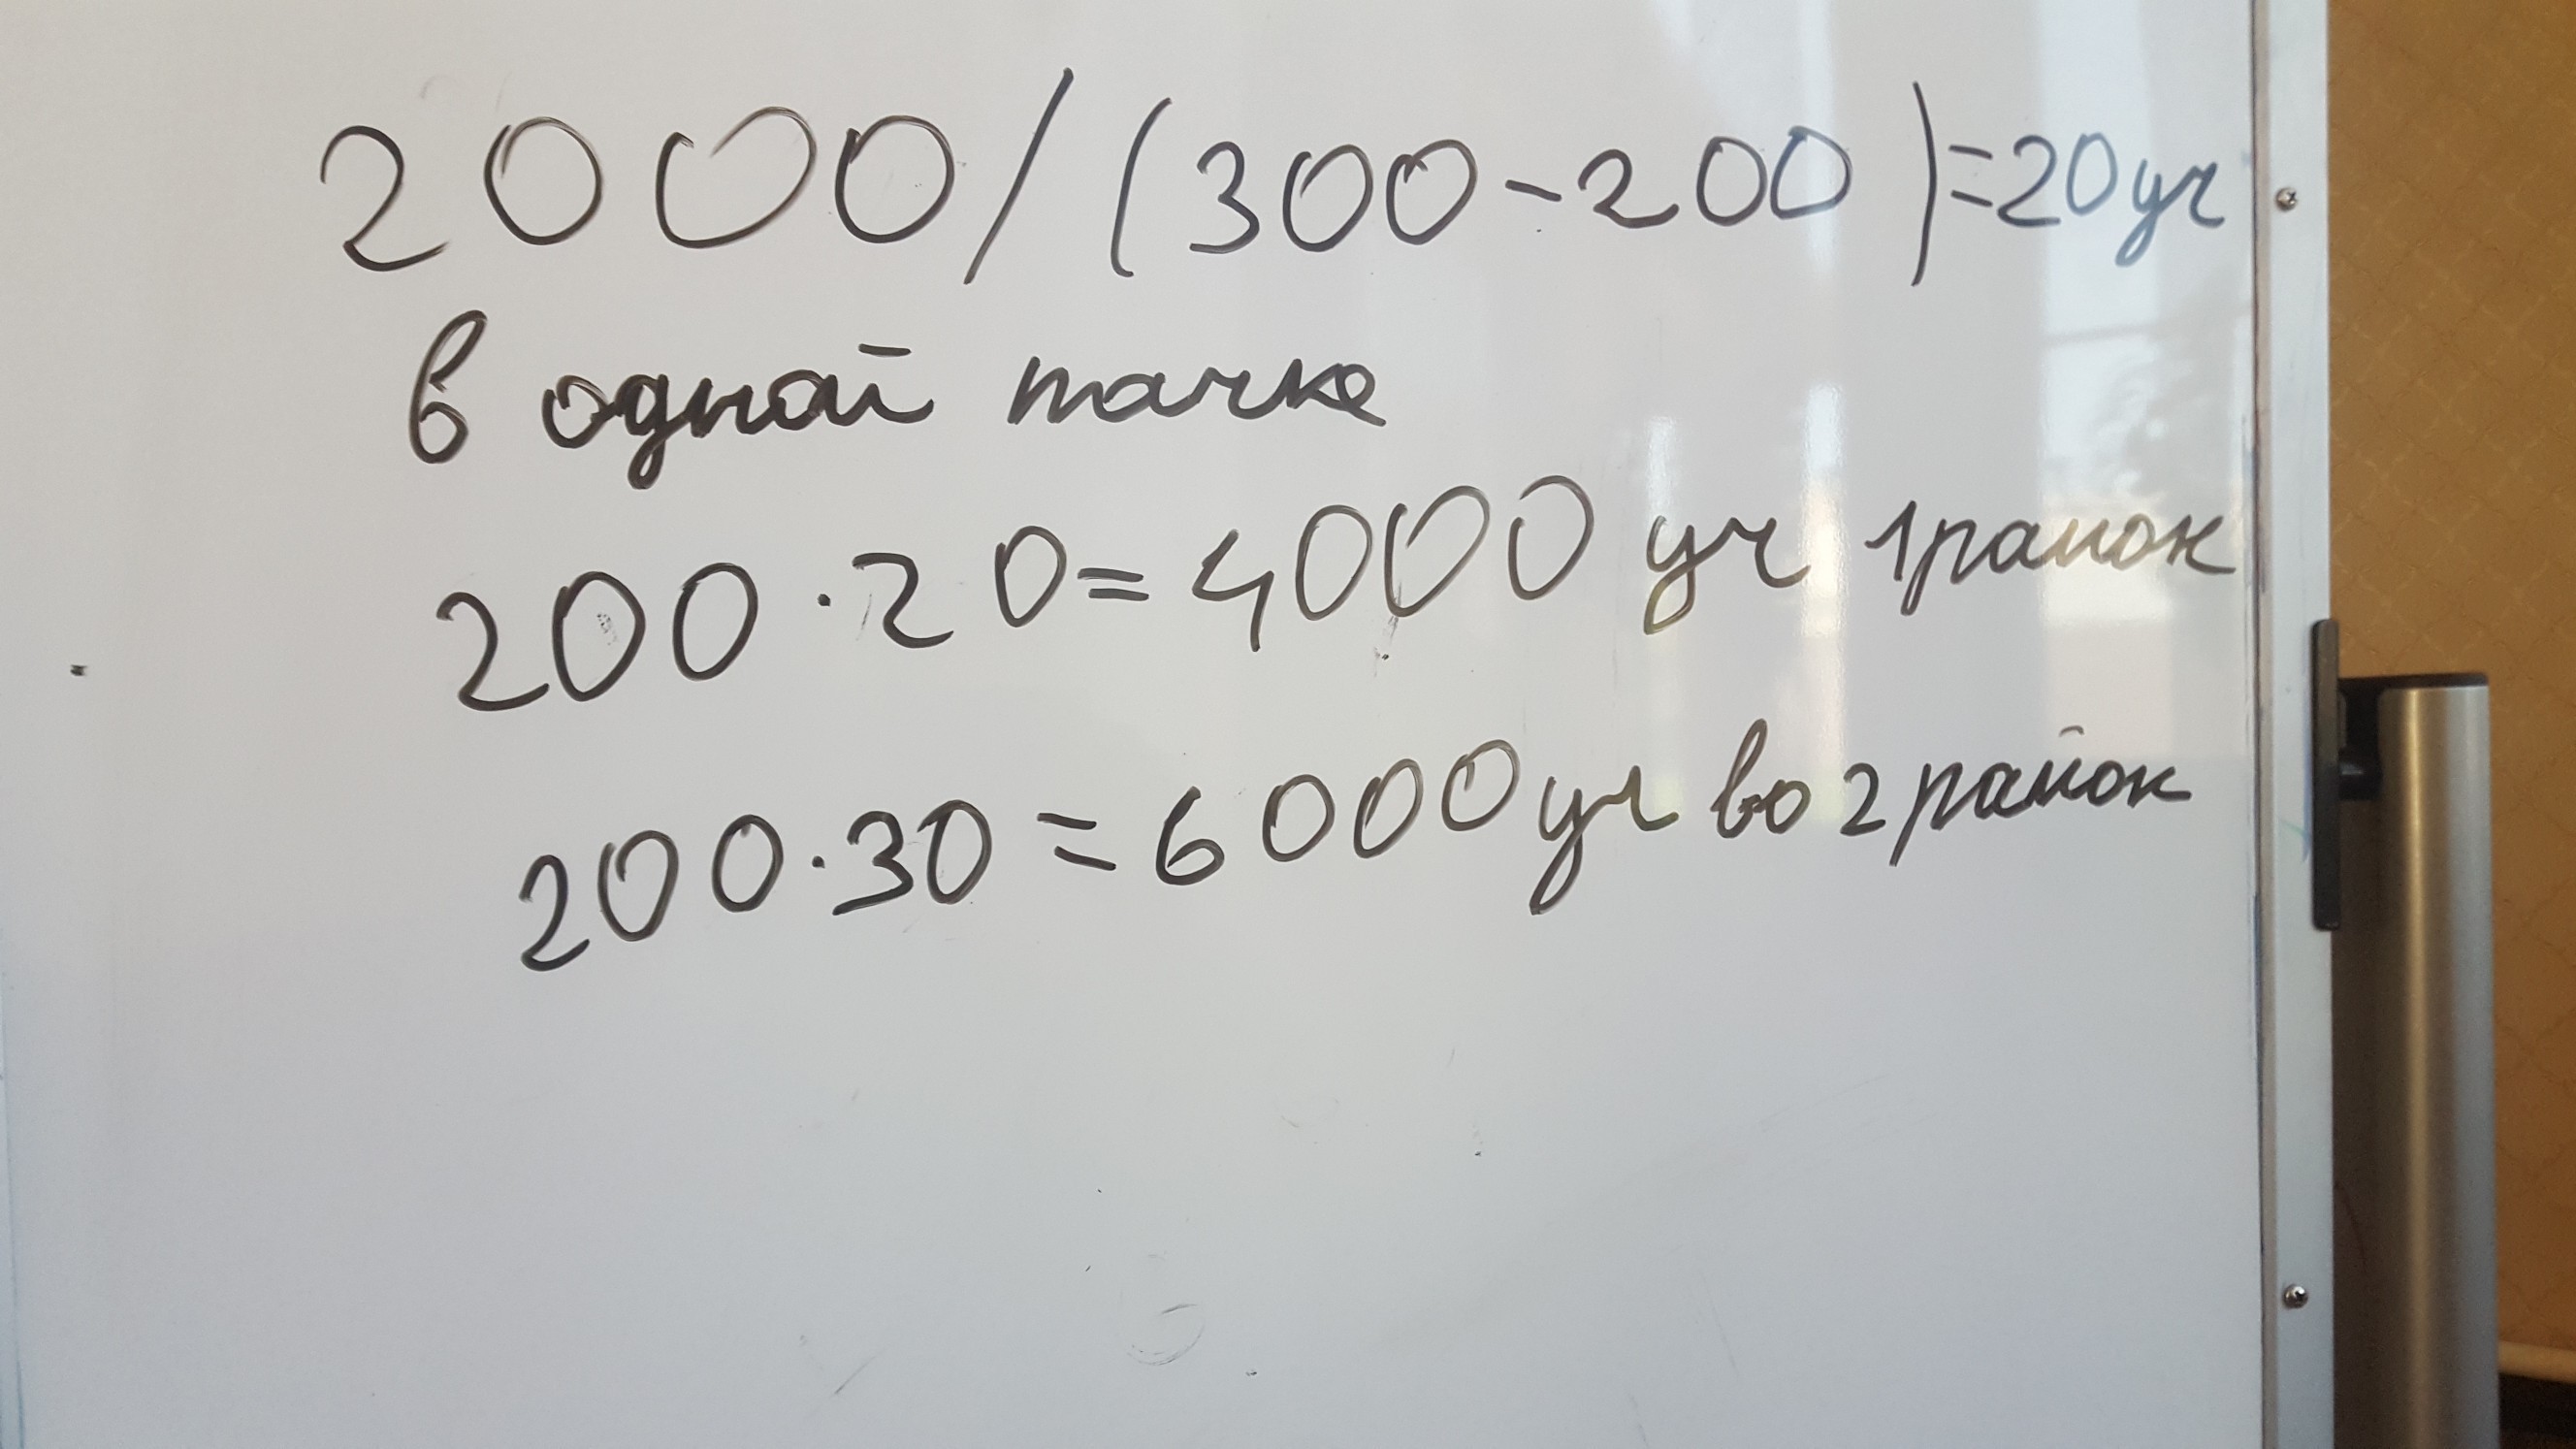 2000/(300-200)=20уч
в одной тачке
200·20=4000 уч 1 район
200·30=6000 уч во 2 район